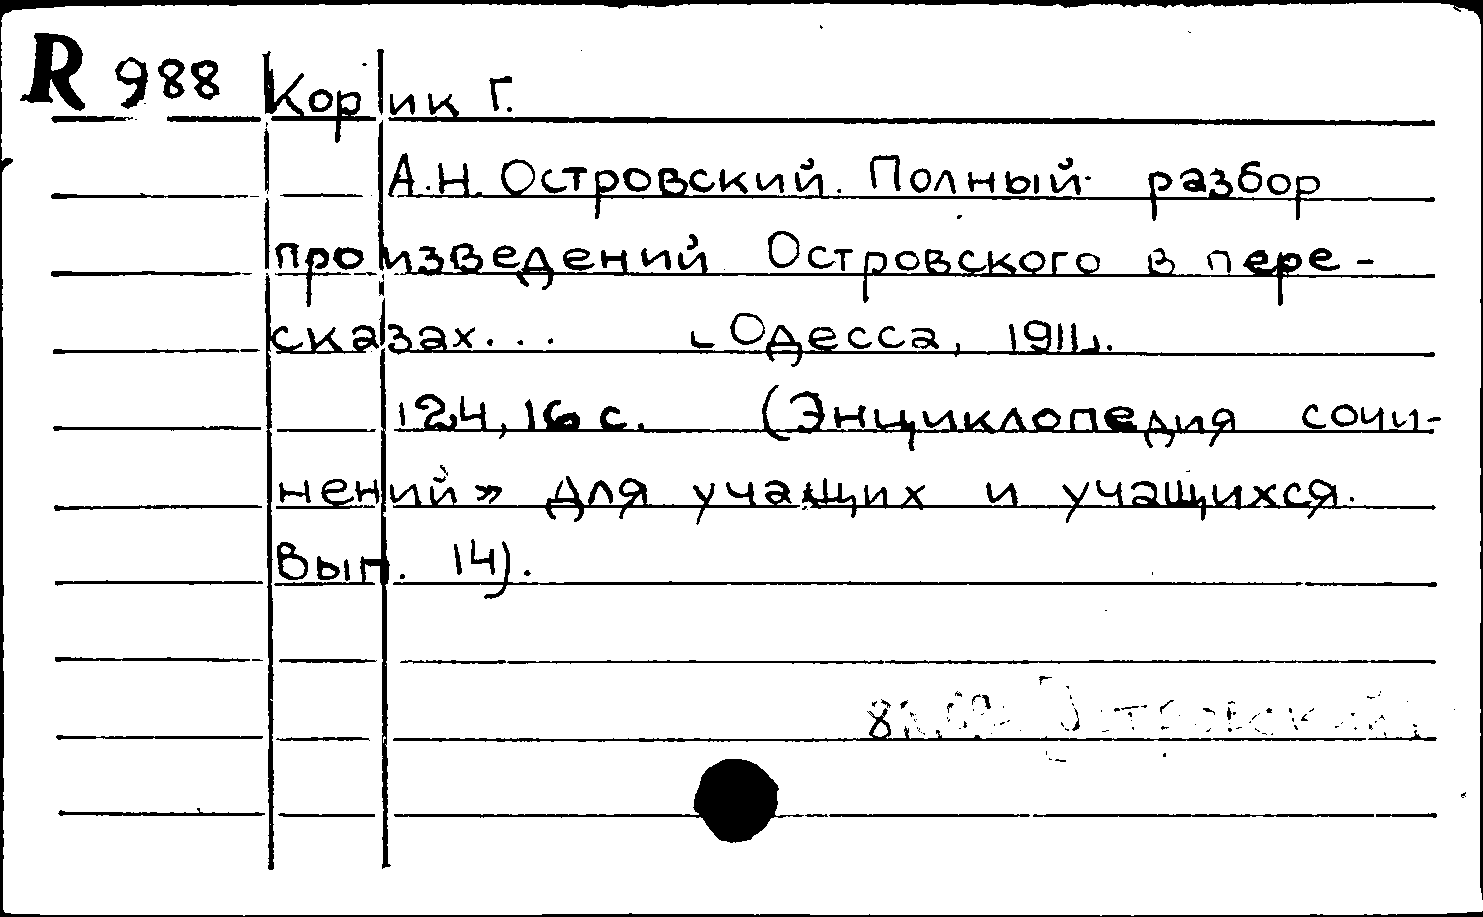 R 988 Корик Г.
А.Н. Островский. Полный разбор
произведений Островского в пере-
сказах... Одесса, 1911.
124, 16 с. (Энциклопедия сочи-
нений» для учащих и учащихся.
Вып. 14).
Островский